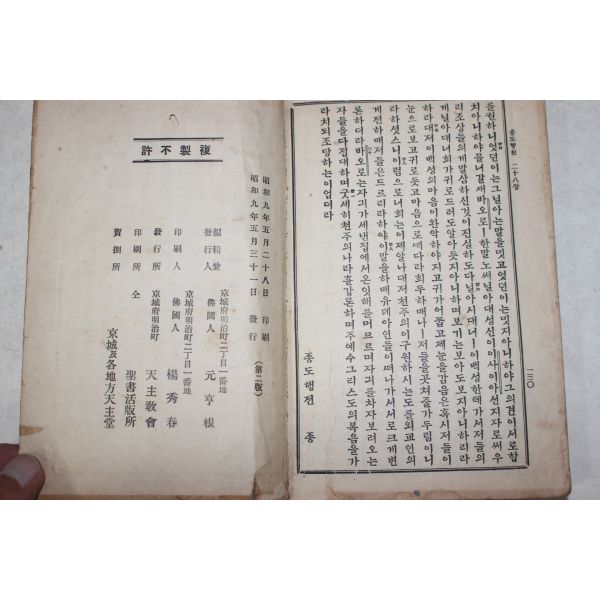 종도행전 二十八장
一三〇
를권하니엇던이는그닐아는말을밋고엇던이는밋지아니하야그의견이서로합
지아니하야들너갈새바오로ㅣ한말노써닐아대성신이이사이아선지자로써우
리조상들의게말삼하신것이진실하도다닐아시대너ㅣ이백성한테가서저들의
게닐아대너희가귀로드러도알아듯지아니하며보기는보아도보지아니하리라
하라대저이백성의마음이완악하야지고귀가어둡고제눈을감음은혹시저들이
눈으로보고귀로듯고마음으로깨다라회두하매나ㅣ저들을곳쳐줄가두림이니
라하셧스니이럼으로너희는이제알나대저천주의이구원하시는도를외교인의
게전하매저들은드르리라하야이말을하매유데아인들이떠나가서서로크게변
론하더라바오로는자긔가세낸집에서온잇해를머므르며자긔를차자보려오는
자들을다접대하며굿세히천주의나라흘강론하며주예수그리스도의복음을가
라치되조당하는이업더라
종도행전 종
昭和九年五月二十八日 印刷
昭和九年五月三十一日 發行 (第二版)
複製不許
編輯兼
發行人
京城府明治町二丁目一番地
佛國人 元亨根
印刷人
京城府明治町二丁目一番地
佛國人 楊秀春
發行所 京城府明治町 天主敎會
印刷所 仝 聖書活版所
賣捌所 京城及各地方天主堂